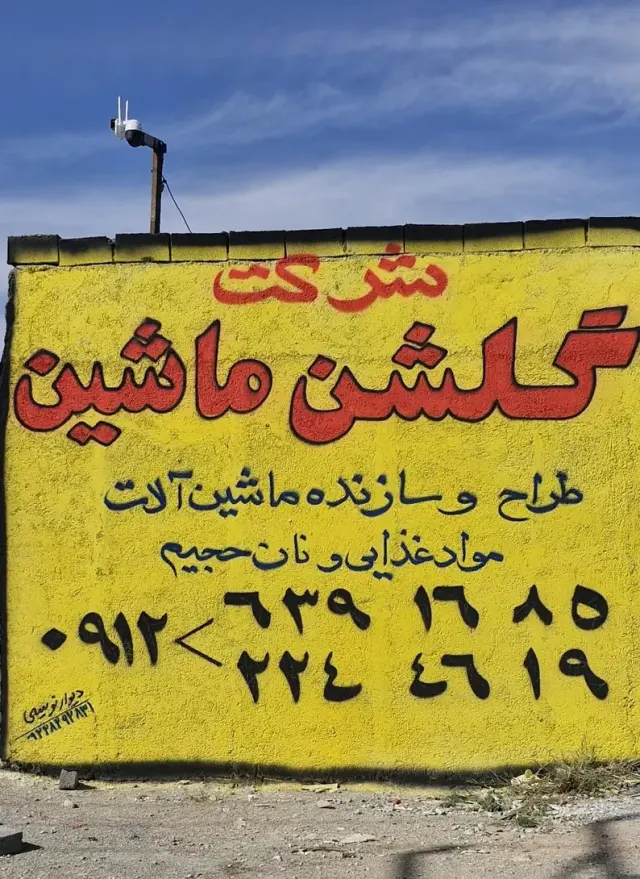 شرکت
گلشن ماشین
طراح و سازنده ماشین‌آلات
مواد غذایی و نان حجیم
۰۹۱۲ < ۶۳۹ ۱۶ ۸۵
۲۲۴ ۴۶ ۱۹
دیوارنویسی